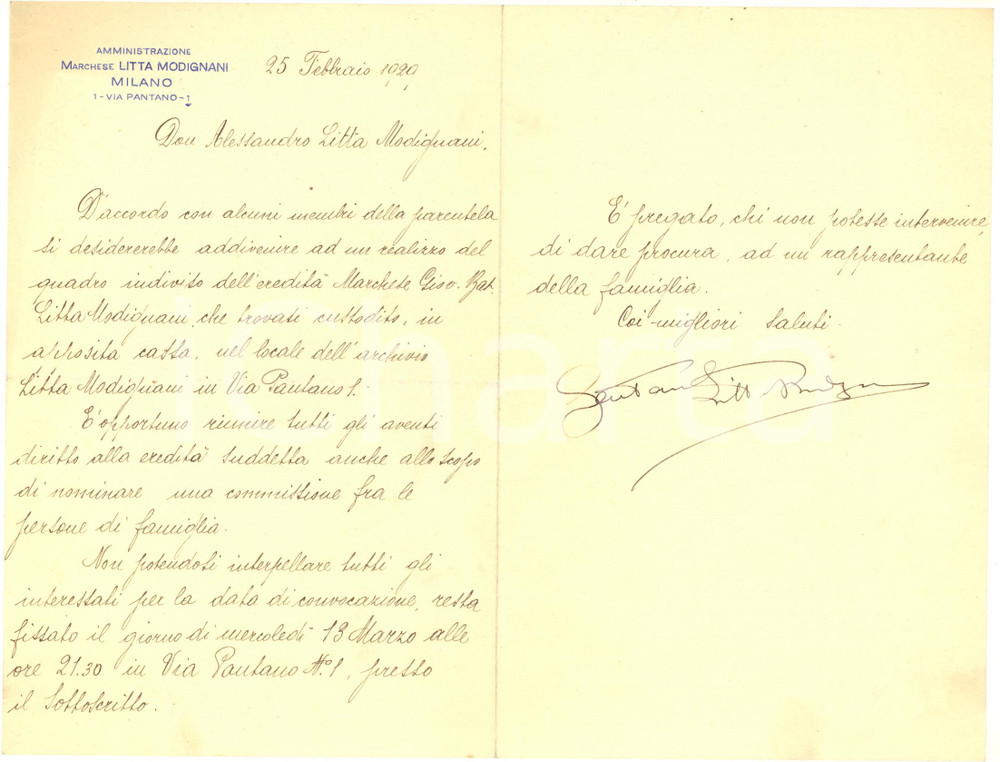 AMMINISTRAZIONE
MARCHESE LITTA MODIGNANI
MILANO
1 - VIA PANTANO - 1
25 Febbraio 1929
Don Alessandro Litta Modignani.
D'accordo con alcuni membri della parentela
si desidererebbe addivenire ad un realizzo del
quadro indiviso dell'eredità Marchese Giov. Bat.
Litta Modignani, che trovasi custodito, in
apposita cassa, nel locale dell'archivio
Litta Modignani in Via Pantano 1.
E' opportuno riunire tutti gli aventi
diritto alla eredità suddetta anche allo scopo
di nominare una commissione fra le
persone di famiglia.
Non potendosi interpellare tutti gli
interessati per la data di convocazione, resta
fissato il giorno di mercoledì 13 Marzo alle
ore 21.30 in Via Pantano N.º 1, presso
il Sottoscritto.
E' pregato, chi non potesse intervenire,
di dare procura, ad un rappresentante
della famiglia.
Coi migliori saluti.
Litta